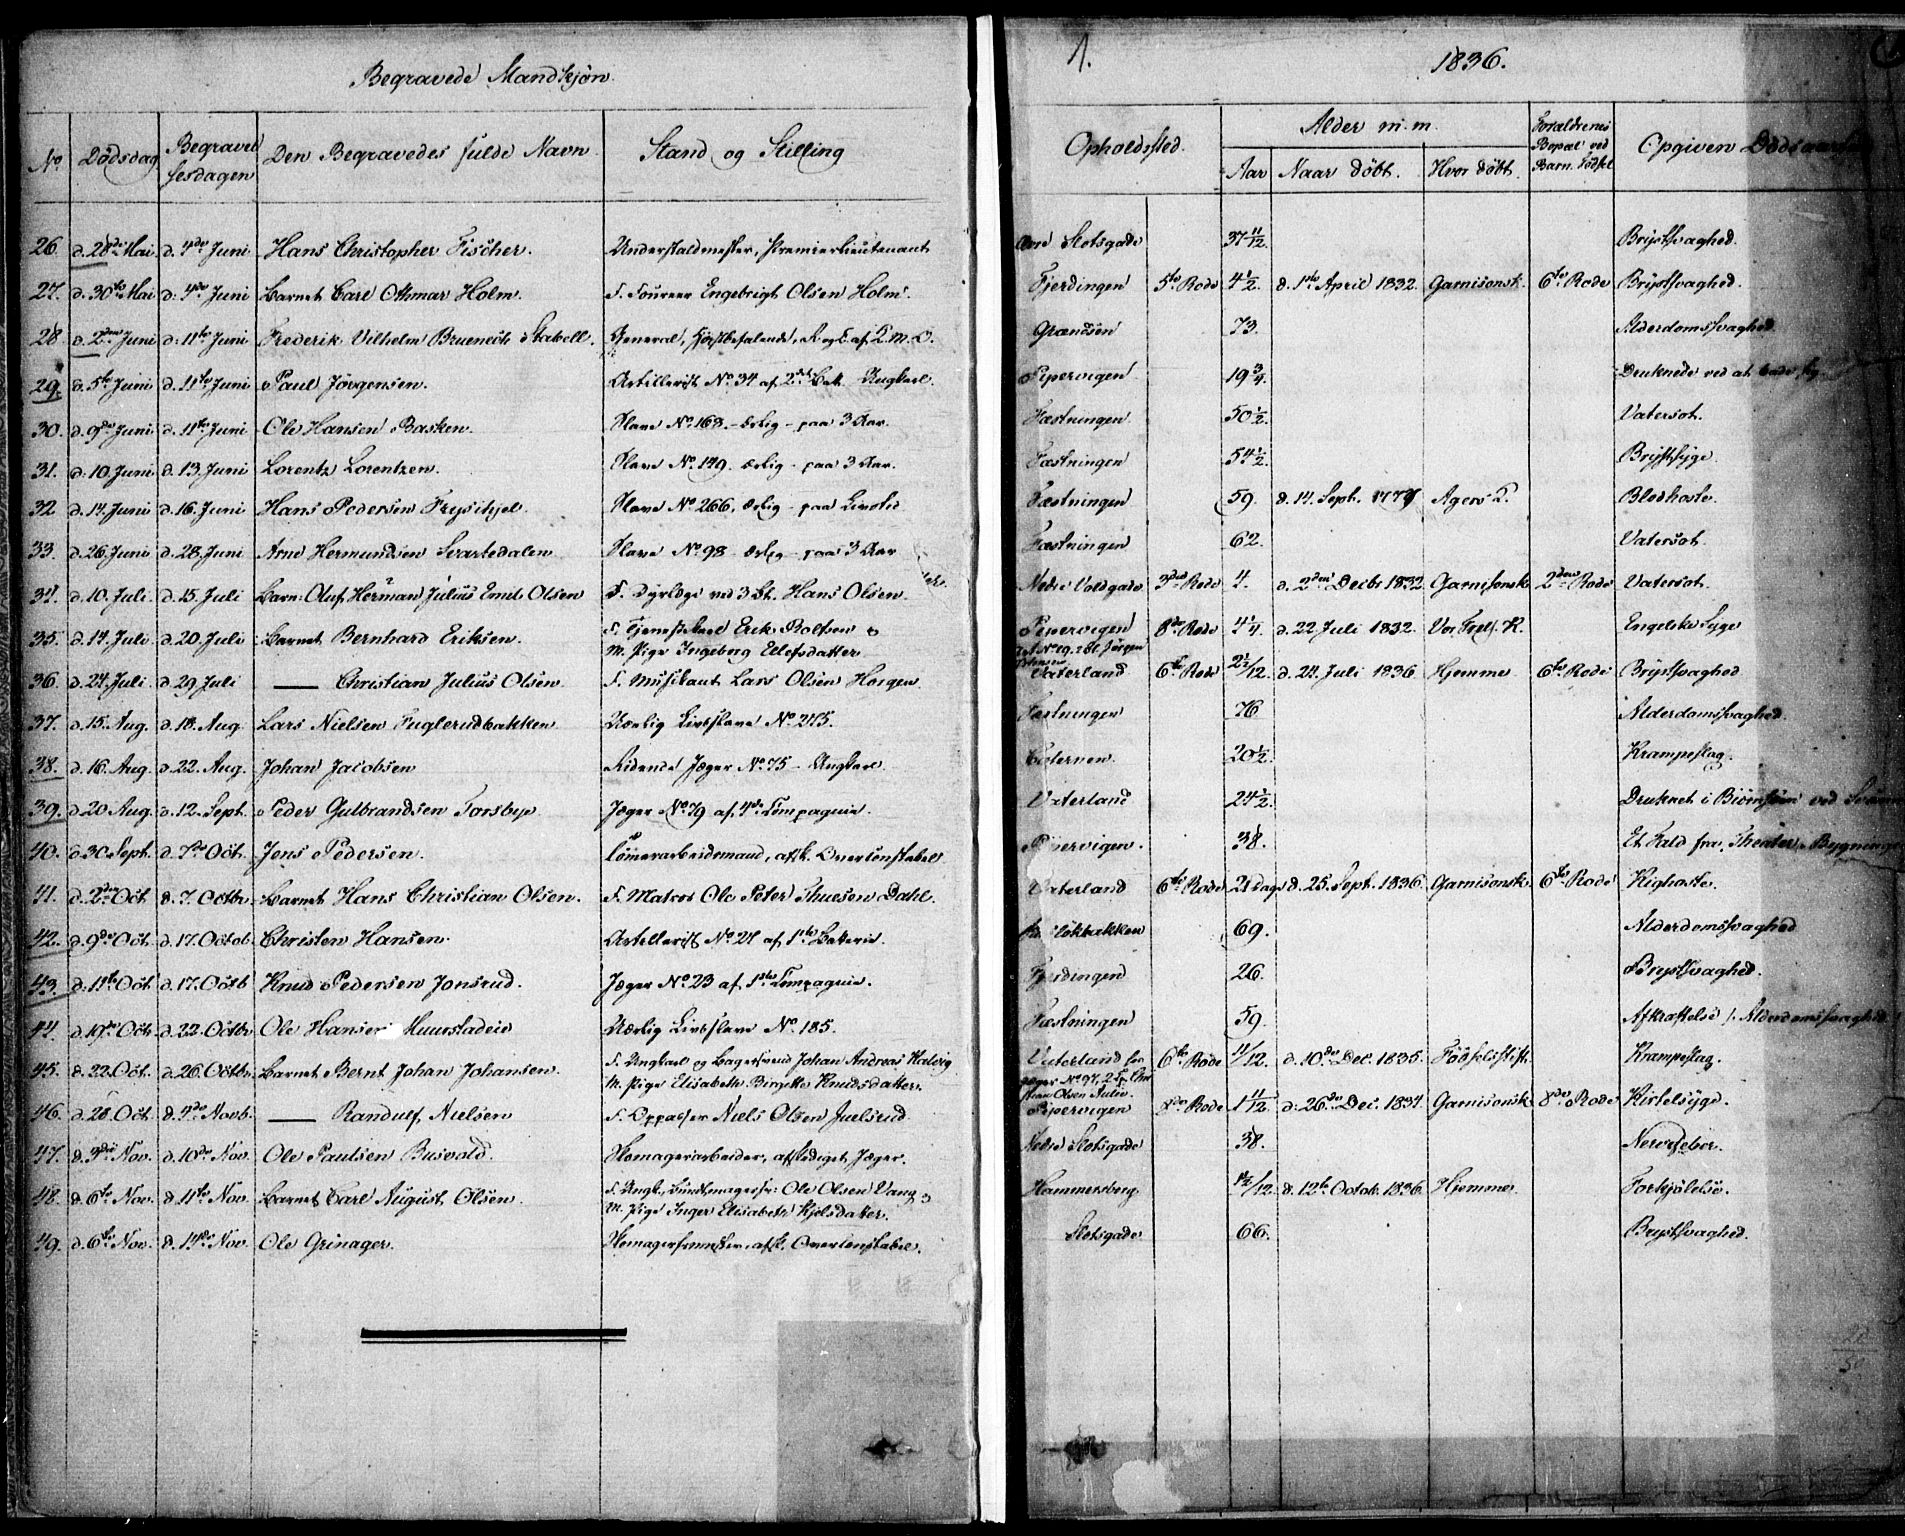 Begravede Mandkjøn.
1.
1836.
No Dödsdag Begravelsesdagen Den Begravedes fulde Navn. Stand og Stilling Opholdssted. Alder m.m. Aar Naar døbt. Hvor døbt. Foræeldrenes Bopæl ved Barn. Födsel Opgiven Dødsaarsag
26. d. 28de Mai d. 4de Juni Hans Christopher Fischer. Understaldmester, Premierlieutenant Slotsgade 37 11/12. Brystsvaghed.
27. d. 30te Mai d. 4de Juni Barnet Carl Othmar Holm. F. Foureer Engebrigt Olsen Holm. Fjerdingen 5te Rode 4 1/2. d. 1ste April 1832. Garnisonsk. 6te Rode Brystsvaghed.
28 d. 2den Juni d. 11te Juni Frederik Vilhelm Bruenech Stabell. General, Grændsen 73. Alderdomssvaghed
29. d. 5te Juni d. 11te Juni Paul Jörgensen. Artillerist No. 34 af 2det Bat. Ungkarl. Pipervigen 19 3/4. Druknede ved at bade sig.
30. d. 9de Juni d. 11te Juni Ole Hansen Basken. Slave No. 163. - ærlig - paa 3 Aar. Fæstningen 50 1/2. Vatersot.
31. d. 10. Juni d. 13. Juni Lorentz Lorentzen. Slave No. 149. ærlig - paa 3 Aar. Fæstningen 54 1/2. Brystsyge.
32 d. 14. Juni d. 16. Juni Hans Pedersen Slave No. 266, ærlig - paa Livstid Fæstningen 59. d. 14. Sept. 1777 Agers K. Blodhoste.
33. d. 26. Juni d. 28. Juni Arne Hermundsen Svartedalen Slave No. 98 - ærlig - paa 3 Aar Fæstningen 62. Vatersot.
34. d. 10. Juli. d. 15. Juli Barn: Oluf Herman Julius Emil Olsen F. Dyrlæge ved Hans Olsen. Nedre Voldgade 3die Rode 4. d. 2den Decbr 1832 Garnisonsk. 2den Rode Vatersot.
35. d. 14. Juli. d. 20. Juli Barnet Bernhard Eriksen. F. Tjenestekarl Erik Rolfsen o
M. Pige Ingeborg Ellefsdatter Pipervigen 8de Rode 4 1/4. d. 22. Juli 1832. Vor Frels. K. Engelske Syge
36 d. 24. Juli d. 29. Juli — Christian Julius Olsen F. Musikant Lars Olsen Horgen Vaterland 6te Rode 2 1/2/12. d. 24. Juli 1836 Hjemme 6te Rode Brystsvaghed
37. d. 15. Aug. d. 18. Aug Lars Nielsen Fuglerudbakken Uærlig Livsslave No. 275. Fæstningen 76 Alderdomssvaghed.
38. d. 16. Aug. d. 22. Aug. Johan Jacobsen Ridende Jæger No. 75 - Ungkarl. 20 1/2. Krampeslag.
39. d. 20 Aug. d. 12. Sept. Peder Gulbrandsen Torsbye Jæger No. 79 af 4de Compagnie. Vaterland 24 1/2. Druknet i ved
40. d. 30 Sept. d. 7de Oct. Jens Pedersen. Tömerarbeidsmand, afsk. Overconstabel Pipervigen. 38. Et Fald fra Theater-Bygningen
41. d. 2den Oct. d. 7. Octbr. Barnet Hans Christian Olsen. F. Matros Ole Peter Thuesen Dahl. Vaterland 6te Rode 21 Dage d. 25. Sept. 1836. Garnisonsk. 6te Rode Kighoste.
42. d. 9de Oct. d. 17. Octob. Christen Hansen. Artillerist No. 21 af 1ste Batterie. 69. Alderdomssvaghed
43. d. 11te Oct. d. 17. Octb. Knud Pedersen Jonsrud. Jæger No. 23 af 1ste Compagnie. Fjerdingen 26. Brystsvaghed.
44. d. 19de Oct. d. 22. Octbr. Ole Hansen Muurstadeie Uærlig Livsslave No. 185. Fæstningen 59. Afkræftelse /: Alderdomssvaghed
45. d. 22. Oct. d. 26. Octbr. Barnet Bernt Johan Johansen. F. Ungkarl og Bagersvend Johan Andreas Halvig
M. Pige Elisabeth Birgitte Knudsdatter. Vaterland 6te Rode 11/12. d. 10de Dec. 1835. Födselsstift. Krampeslag.
46. d. 28. Oct. d. 4de Novb. — Randulf Nielsen F. Oppasser Niels Olsen Juelsrud. Pipervigen 8de Rode 1 11/12. d. 26de Dec. 1834 Garnisonsk. 8de Rode Kirtelsyge.
47. d. 3die Nov. d. 10de Nov. Ole Paulsen Busvold. Skomagerarbeider, afskediget Jæger. Nedre Slotsgade 38. Nervefeber.
48. d. 6te Nov. d. 11te Nov. Barnet Carl August Olsen. F. Ungk. Buntmagersv: Ole Olsen Vang o
M. Pige Inger Elisabeth Kjelsdatter. Hammersborg 1 1/2/12. d. 12te Octob. 1836. Hjemme. Forkjölelse.
49. d. 6te Nov. d. 14de Nov. Ole Grinager. Skomagermester, afsk. Overconstabel. Slotsgade 66. Brystsvaghed.